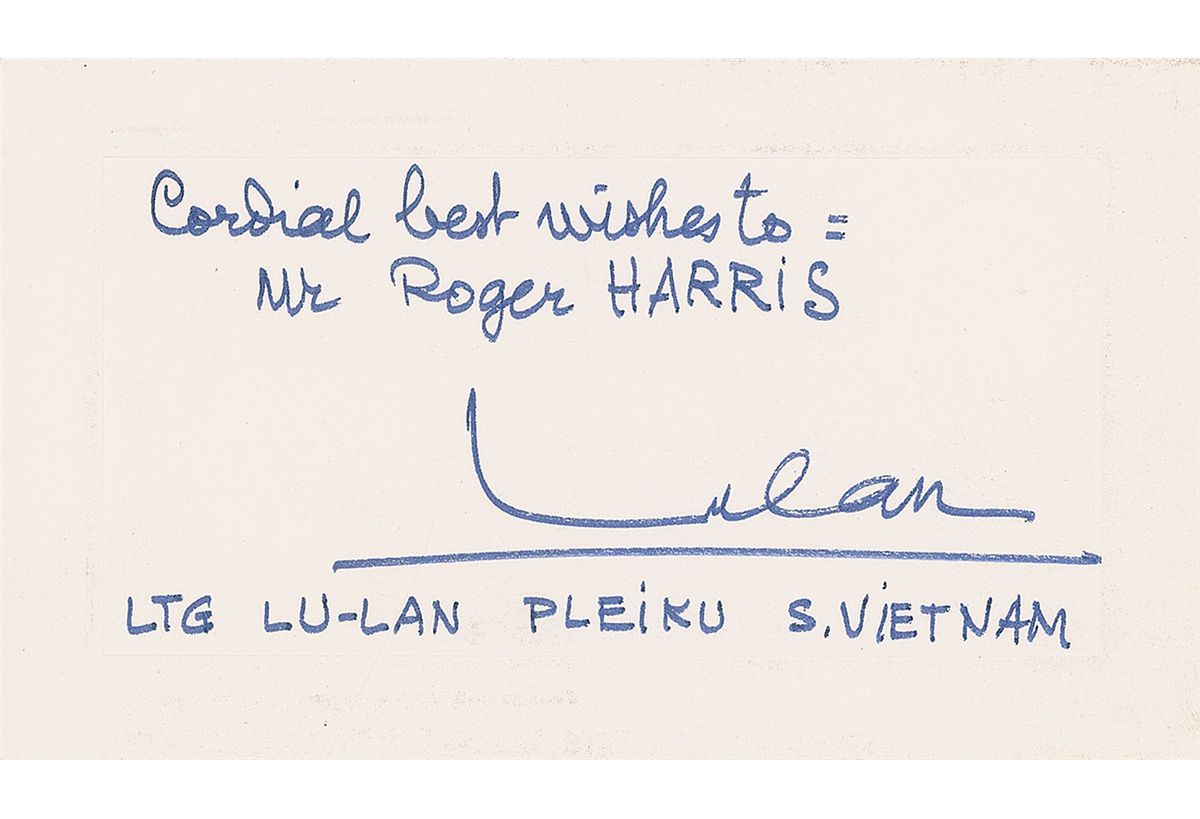 Cordial best wishes to =
Mr Roger HARRiS
Lulan
LTG LU-LAN PLEiKU S.ViETNAM